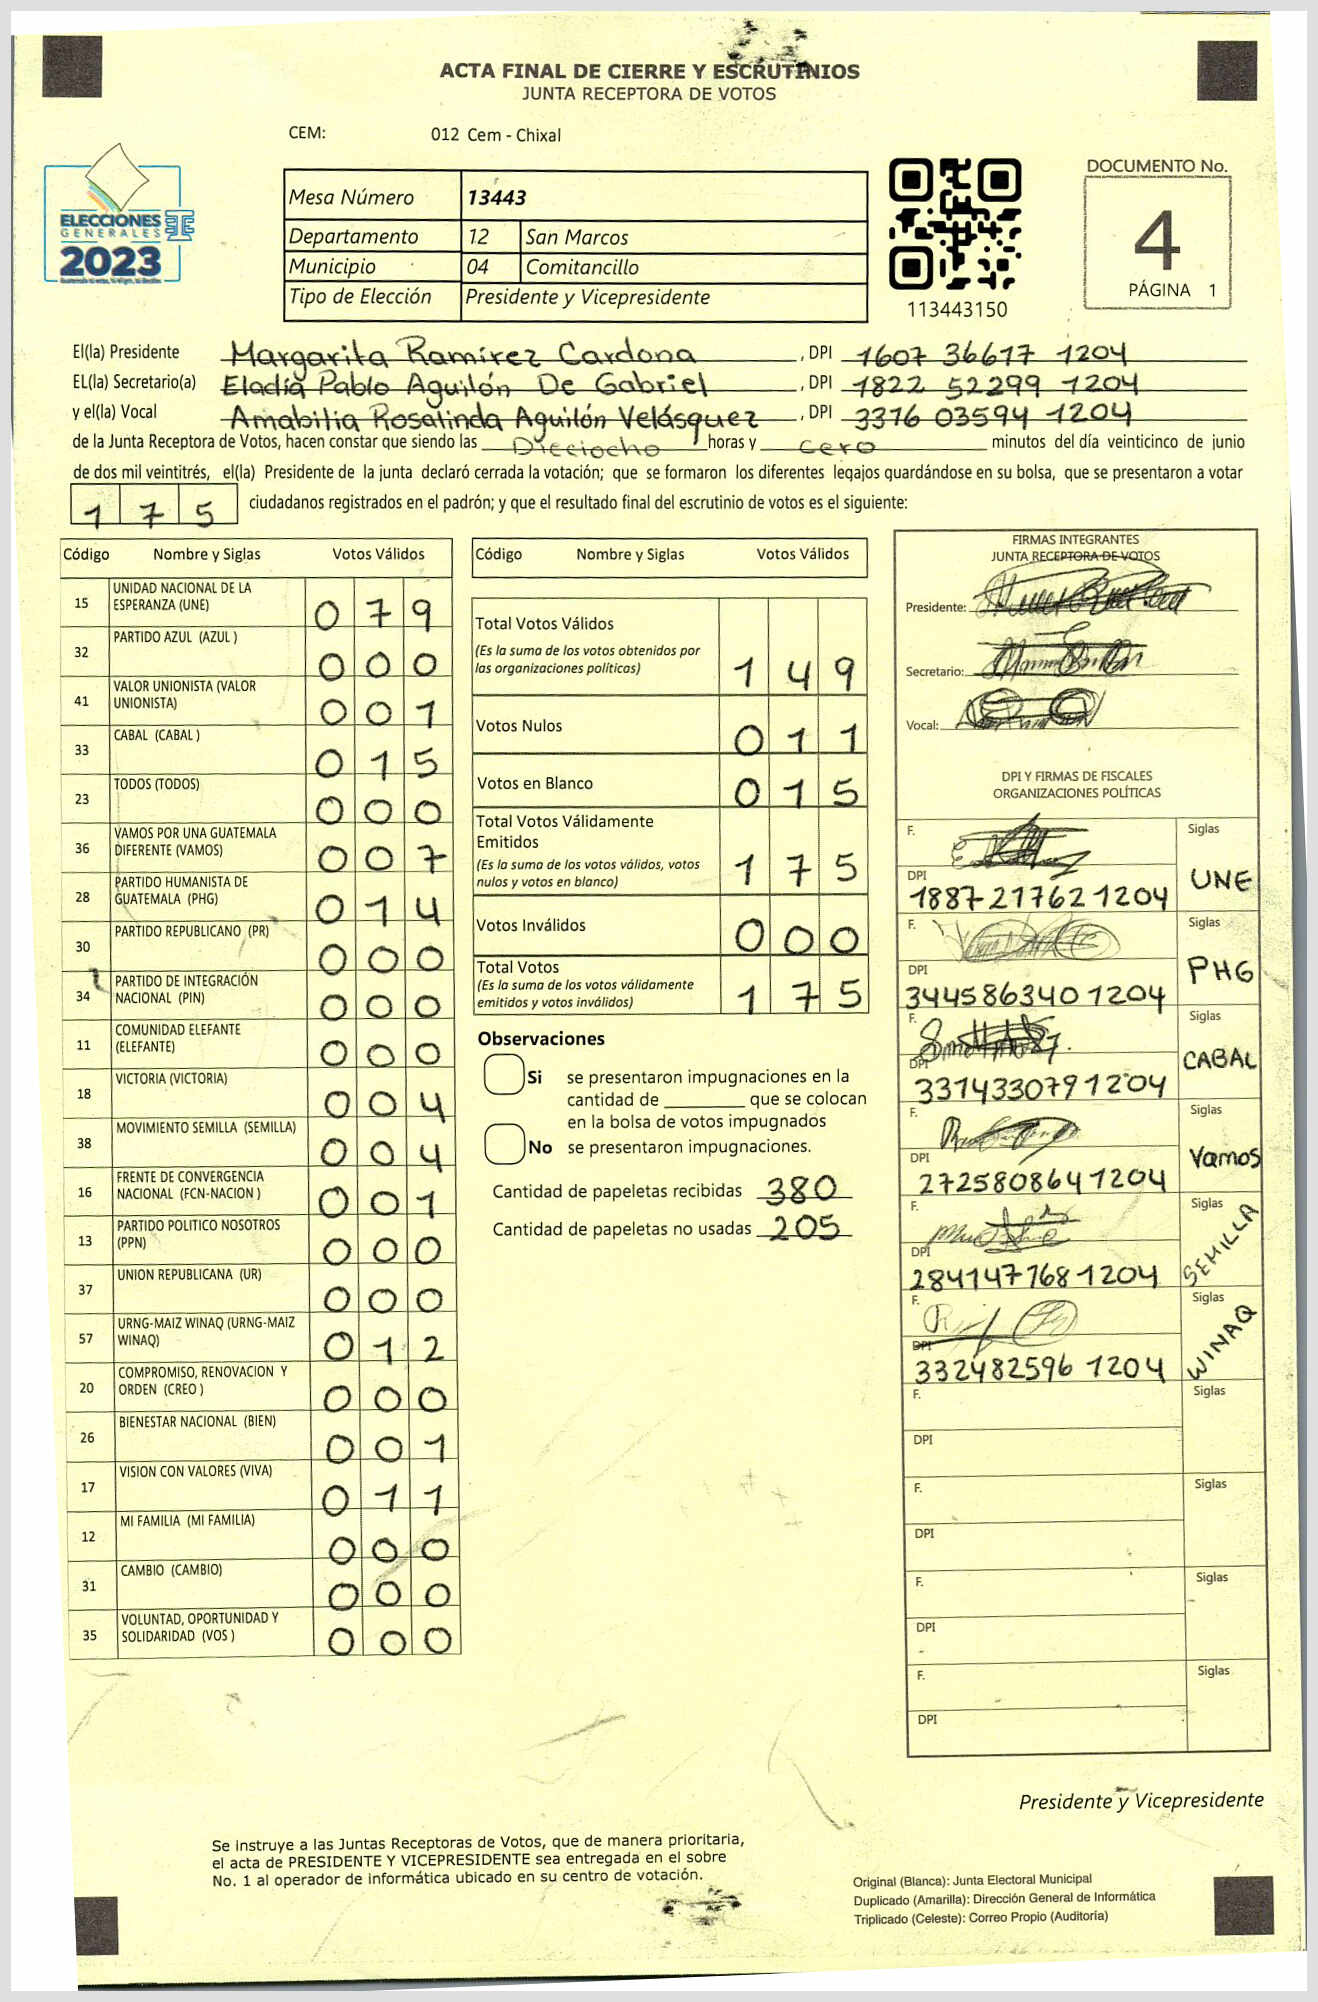 ACTA FINAL DE CIERRE Y ESCRUTINIOS
JUNTA RECEPTORA DE VOTOS
CEM: 012 Cem - Chixal
ELECCIONES
GENERALES
2023
Mesa Número 13443
Departamento 12 San Marcos
Municipio 04 Comitancillo
Tipo de Elección Presidente y Vicepresidente
113443150
DOCUMENTO No.
4
PÁGINA 1
El(la) Presidente Margarita Ramírez Cardona, DPI 1607 36617 1204
EL(la) Secretario(a) Eladia Pablo Aguilón De Gabriel, DPI 1822 52299 1204
y el(la) Vocal Amabilia Rosalinda Aguilón Velásquez, DPI 3376 03594 1204
de la Junta Receptora de Votos, hacen constar que siendo las Dieciocho horas y cero minutos del día veinticinco de junio
de dos mil veintitrés, el(la) Presidente de la junta declaró cerrada la votación; que se formaron los diferentes legajos guardándose en su bolsa, que se presentaron a votar
1 7 5 ciudadanos registrados en el padrón; y que el resultado final del escrutinio de votos es el siguiente:
Código Nombre y Siglas Votos Válidos
15 UNIDAD NACIONAL DE LA ESPERANZA (UNE) 0 7 9
32 PARTIDO AZUL (AZUL ) 0 0 0
41 VALOR UNIONISTA (VALOR UNIONISTA) 0 0 1
33 CABAL (CABAL ) 0 1 5
23 TODOS (TODOS) 0 0 0
36 VAMOS POR UNA GUATEMALA DIFERENTE (VAMOS) 0 0 7
28 PARTIDO HUMANISTA DE GUATEMALA (PHG) 0 1 4
30 PARTIDO REPUBLICANO (PR) 0 0 0
34 PARTIDO DE INTEGRACIÓN NACIONAL (PIN) 0 0 0
11 COMUNIDAD ELEFANTE (ELEFANTE) 0 0 0
18 VICTORIA (VICTORIA) 0 0 4
38 MOVIMIENTO SEMILLA (SEMILLA) 0 0 4
16 FRENTE DE CONVERGENCIA NACIONAL (FCN-NACION ) 0 0 1
13 PARTIDO POLITICO NOSOTROS (PPN) 0 0 0
37 UNION REPUBLICANA (UR) 0 0 0
57 URNG-MAIZ WINAQ (URNG-MAIZ WINAQ) 0 1 2
20 COMPROMISO, RENOVACION Y ORDEN (CREO ) 0 0 0
26 BIENESTAR NACIONAL (BIEN) 0 0 1
17 VISION CON VALORES (VIVA) 0 1 1
12 MI FAMILIA (MI FAMILIA) 0 0 0
31 CAMBIO (CAMBIO) 0 0 0
35 VOLUNTAD, OPORTUNIDAD Y SOLIDARIDAD (VOS ) 0 0 0
Código Nombre y Siglas Votos Válidos
Total Votos Válidos
(Es la suma de los votos obtenidos por
las organizaciones políticas) 1 4 9
Votos Nulos 0 1 1
Votos en Blanco 0 1 5
Total Votos Válidamente
Emitidos
(Es la suma de los votos válidos, votos
nulos y votos en blanco) 1 7 5
Votos Inválidos 0 0 0
Total Votos
(Es la suma de los votos válidamente
emitidos y votos inválidos) 1 7 5
Observaciones
Si se presentaron impugnaciones en la
cantidad de ________ que se colocan
en la bolsa de votos impugnados
No se presentaron impugnaciones.
Cantidad de papeletas recibidas 380
Cantidad de papeletas no usadas 205
FIRMAS INTEGRANTES
JUNTA RECEPTORA DE VOTOS
Presidente:
Secretario:
Vocal:
DPI Y FIRMAS DE FISCALES
ORGANIZACIONES POLÍTICAS
F. Siglas
DPI UNE
1887 21762 1204
F. Siglas
DPI PHG
344586340 1204
F. Siglas
DPI CABAL
331433079 1204
F. Siglas
DPI Vamos
272580864 1204
F. Siglas
DPI SEMILLA
284147768 1204
F. Siglas
DPI WINAQ
332482596 1204
F. Siglas
DPI
F. Siglas
DPI
F. Siglas
DPI
F. Siglas
DPI
Presidente y Vicepresidente
Se instruye a las Juntas Receptoras de Votos, que de manera prioritaria,
el acta de PRESIDENTE Y VICEPRESIDENTE sea entregada en el sobre
No. 1 al operador de informática ubicado en su centro de votación.
Original (Blanca): Junta Electoral Municipal
Duplicado (Amarilla): Dirección General de Informática
Triplicado (Celeste): Correo Propio (Auditoría)